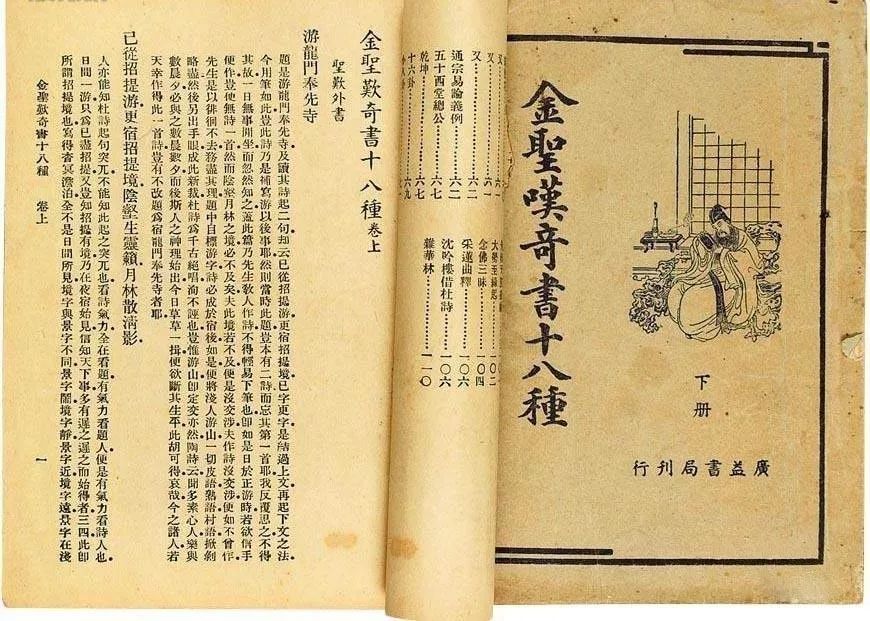 金聖嘆奇書十八種
下册
廣益書局刊行
又
又
通宗易論義例………六二
五十西堂總公………六七
乾坤………六七
十六卦………六九
念佛三昧………一〇四
沈吟樓借杜詩………一〇六
雜華林………一一〇
金聖歎奇書十八種 卷上
聖歎外書
游龍門奉先寺
題是游龍門奉先寺及讀其詩起二句却云已從招提游更宿招提境已字更字是結過上文再起下文之法
今用筆如此豈此詩乃是補寫游以後事耶然則當時此題豈本有二詩而忘其第一首耶我反覆思之不得
其故一日無事閒坐而忽然知之蓋此篇乃先生教人作詩不得輕易下筆也卽如是日於正游時若欲信手
便作豈便無詩一首然而陰壑月林之境必不及矣夫此境若不及便是沒交涉夫作詩沒交涉便如不曾作
先生是以徘徊不去務盡其理題中自標游字詩必成於宿後如是便將淺人游山一切皮語熟語村語掀剝
略盡然後另出手眼成此新裁杜詩爲千古絕唱洵不誣也豈惟游山卽定交亦然陶詩云聞多素心人樂與
數晨夕必與之數晨數夕而後斯人之神理始出今日草草一揖便欲斷其生平此胡可得哉今之諸人若
天幸作得此一首詩豈有不改題爲宿龍門奉先寺者耶
已從招提游更宿招提境陰壑生靈籟月林散淸影
人亦能知杜詩起句突兀不能知此起之突兀也看詩氣力全在看題有氣力看題人便是有氣力看詩人也
日間一游只爲已盡招提又豈知招提有境乃在夜宿始見信知天下事多有遲之遲之而始得者三四此卽
所謂招提境也寫得杳冥澹泊全不是日間所見境字與景字不同景字鬧境字靜景字近境字遠景字在淺
金聖歎奇書十八種 卷上 一